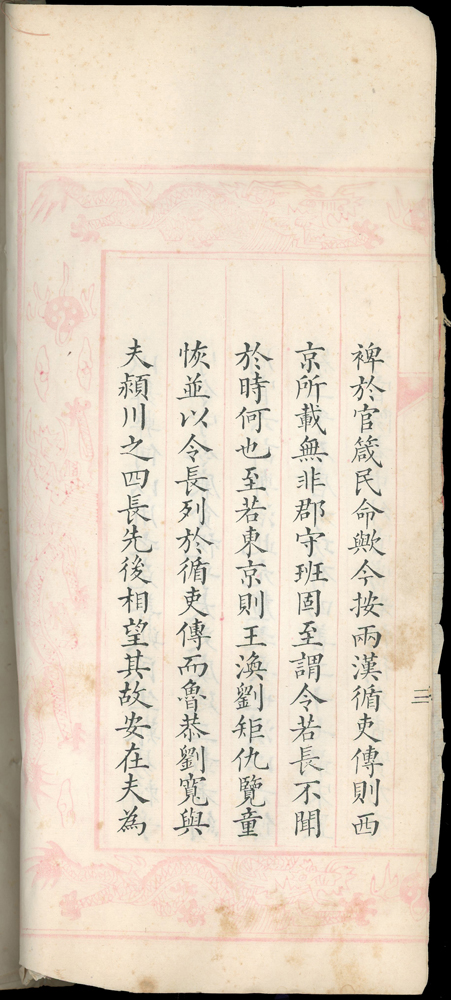 裨於官箴民命歟今按兩漢循吏傳則西
京所載無非郡守班固至謂令若長不聞
於時何也至若東京則王渙劉矩仇覽童
恢並以令長列於循吏傳而魯恭劉寬與
夫潁川之四長先後相望其故安在夫為
三